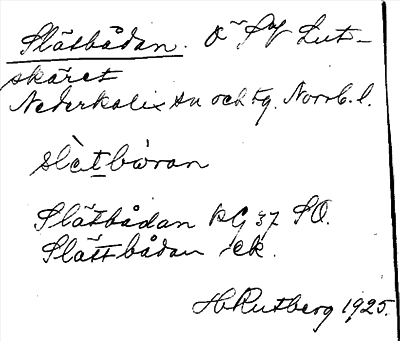 Slätbådan. Ö SV Lut-
skäret
Nederkalix sn och tg. Norrb. l.
slàtbòran
Slätbådan kG 37 SO.
Slättbådan ek.
H Rutberg 1925.